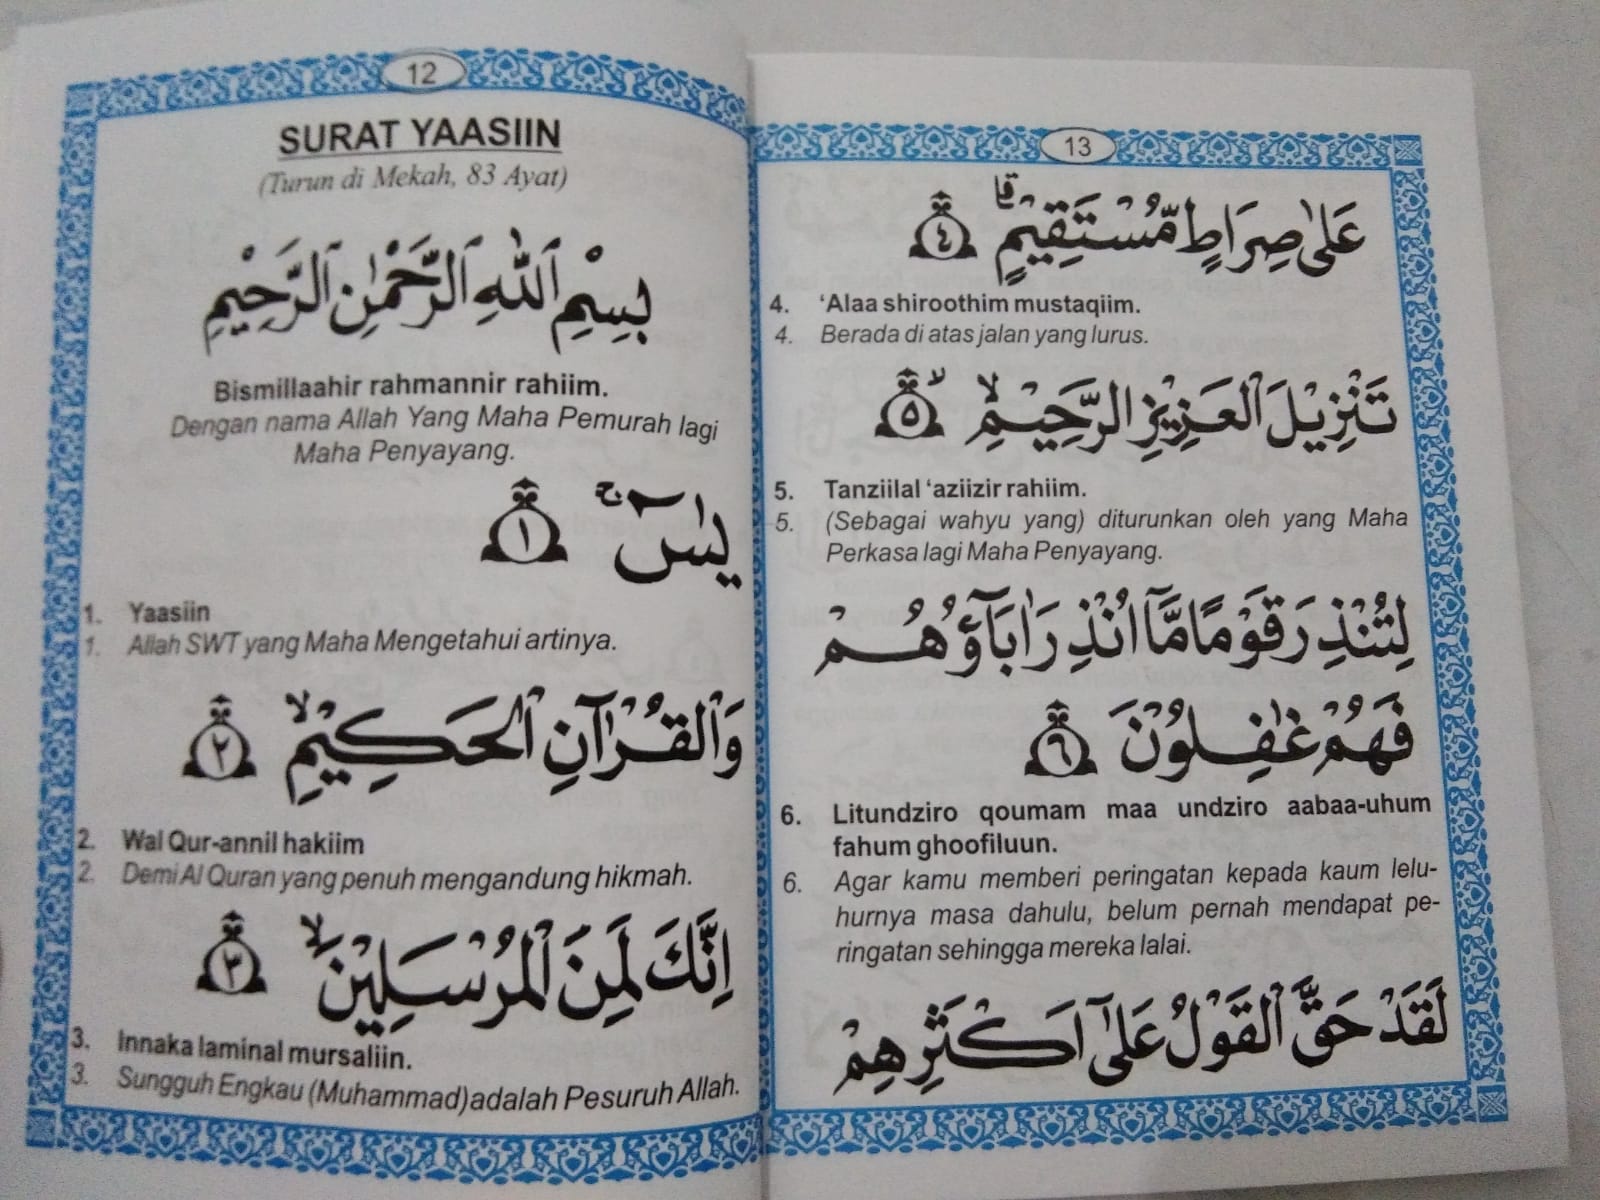 12
SURAT YAASIIN
(Turun di Mekah, 83 Ayat)
بِسْمِ ٱللّٰهِ ٱلرَّحْمٰنِ ٱلرَّحِيْمِ
Bismillaahir rahmannir rahiim.
Dengan nama Allah Yang Maha Pemurah lagi
Maha Penyayang.
يٰسٓ ۚ ١
1. Yaasiin
1. Allah SWT yang Maha Mengetahui artinya.
وَٱلْقُرْآنِ ٱلْحَكِيْمِۙ ٢
2. Wal Qur-annil hakiim
2. Demi Al Quran yang penuh mengandung hikmah.
اِنَّكَ لَمِنَ ٱلْمُرْسَلِيْنَۙ ٣
3. Innaka laminal mursaliin.
3. Sungguh Engkau (Muhammad) adalah Pesuruh Allah.
13
عَلٰى صِرَاطٍ مُّسْتَقِيْمٍۗ ٤
4. ‘Alaa shiroothim mustaqiim.
4. Berada di atas jalan yang lurus.
تَنْزِيْلَ ٱلْعَزِيْزِ ٱلرَّحِيْمِۙ ٥
5. Tanziilal ‘aziizir rahiim.
5. (Sebagai wahyu yang) diturunkan oleh yang Maha
Perkasa lagi Maha Penyayang.
لِتُنْذِرَ قَوْمًا مَّآ اُنْذِرَ اٰبَآؤُهُمْ
فَهُمْ غٰفِلُوْنَ ٦
6. Litundziro qoumam maa undziro aabaa-uhum
fahum ghoofiluun.
6. Agar kamu memberi peringatan kepada kaum lelu-
hurnya masa dahulu, belum pernah mendapat pe-
ringatan sehingga mereka lalai.
لَقَدْ حَقَّ ٱلْقَوْلُ عَلٰٓى اَكْثَرِهِمْ